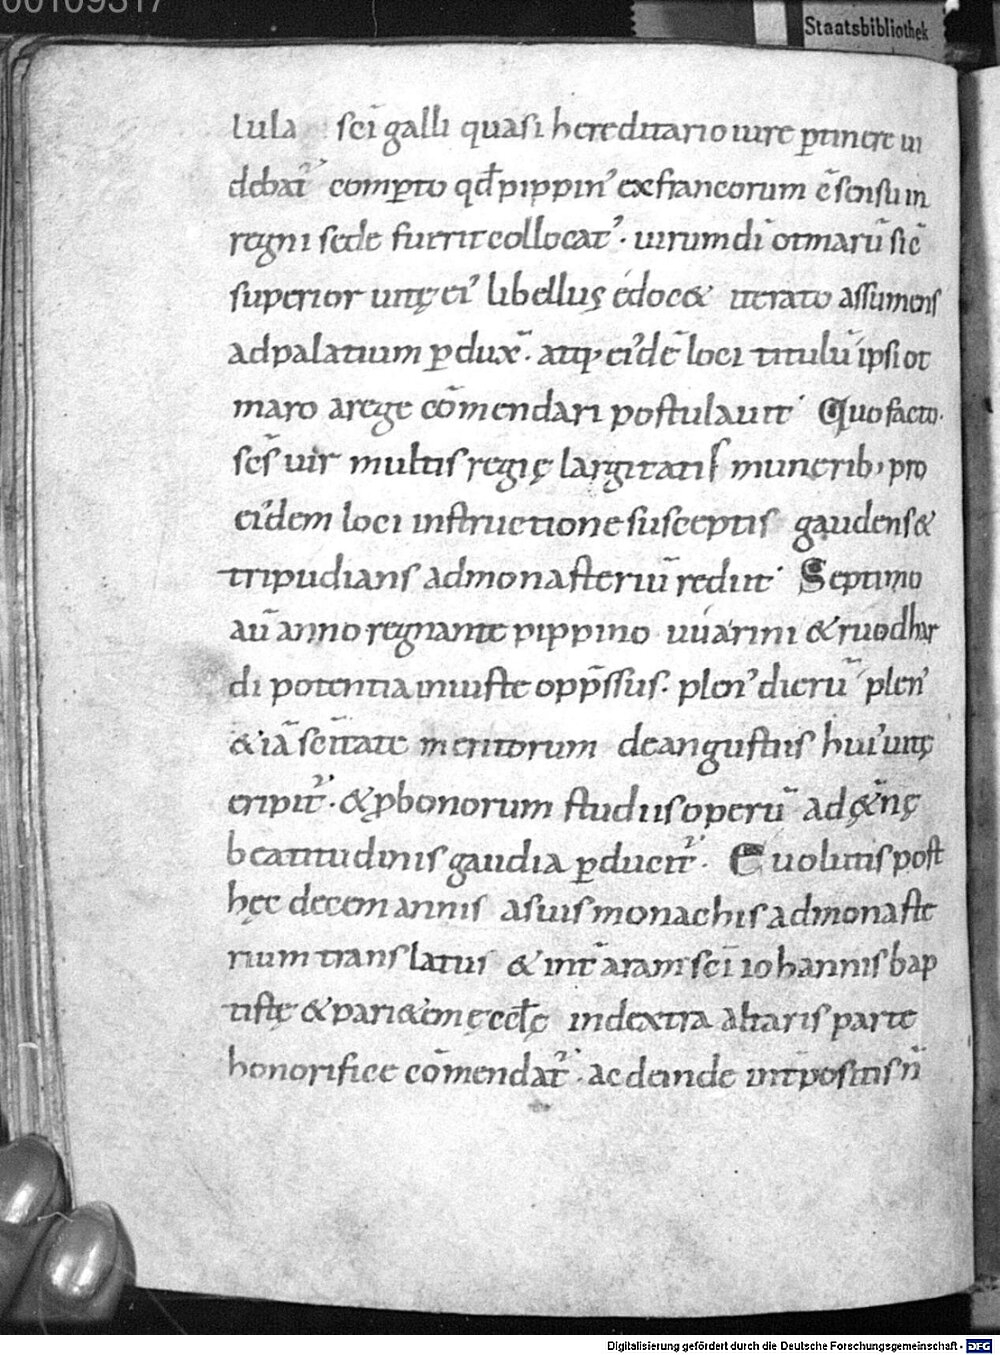 00109317
Staatsbibliothek
lula sc̄i galli quasi hereditario iure ꝑtinere ui
debat᷑ comꝑto qđ pippin᾽ ex francorum c̄sensu in
regni sede fuerit collocat᾽. uirum dī otmarū sic̄
superior uitę ei᾽ libellus edocet iterato assumens
ad palatium ꝑdux̄. atq; ei᾽dē loci titulū ipsi ot
maro a rege cōmendari postulauit. Quo facto.
sc̄s uir multis regię largitatis munerib; pro
ei᾽dem loci instructione susceptis gaudens &
tripudians ad monasteriū rediit. Septimo
aū anno regnante pippino uuarini & ruodhar
di potentia iniuste opp̄ssus. plen᾽ dierū plen᾽
& iā sc̄itate meritorum de angustiis hui᾽ uitę
eripit᷑. & ꝓ bonorum studiis operū ad ęt̄nę
beatitudinis gaudia ꝑducit᷑. Euolutis post
hęc decem annis a suis monachis ad monaste
rium translatus & int̄ aram sc̄i iohannis bap
tistę & parietem ęcclę in dextra altaris parte
honorifice cōmendat᷑. ac deinde int̄positis n̄
Digitalisierung gefördert durch die Deutsche Forschungsgemeinschaft - DFG